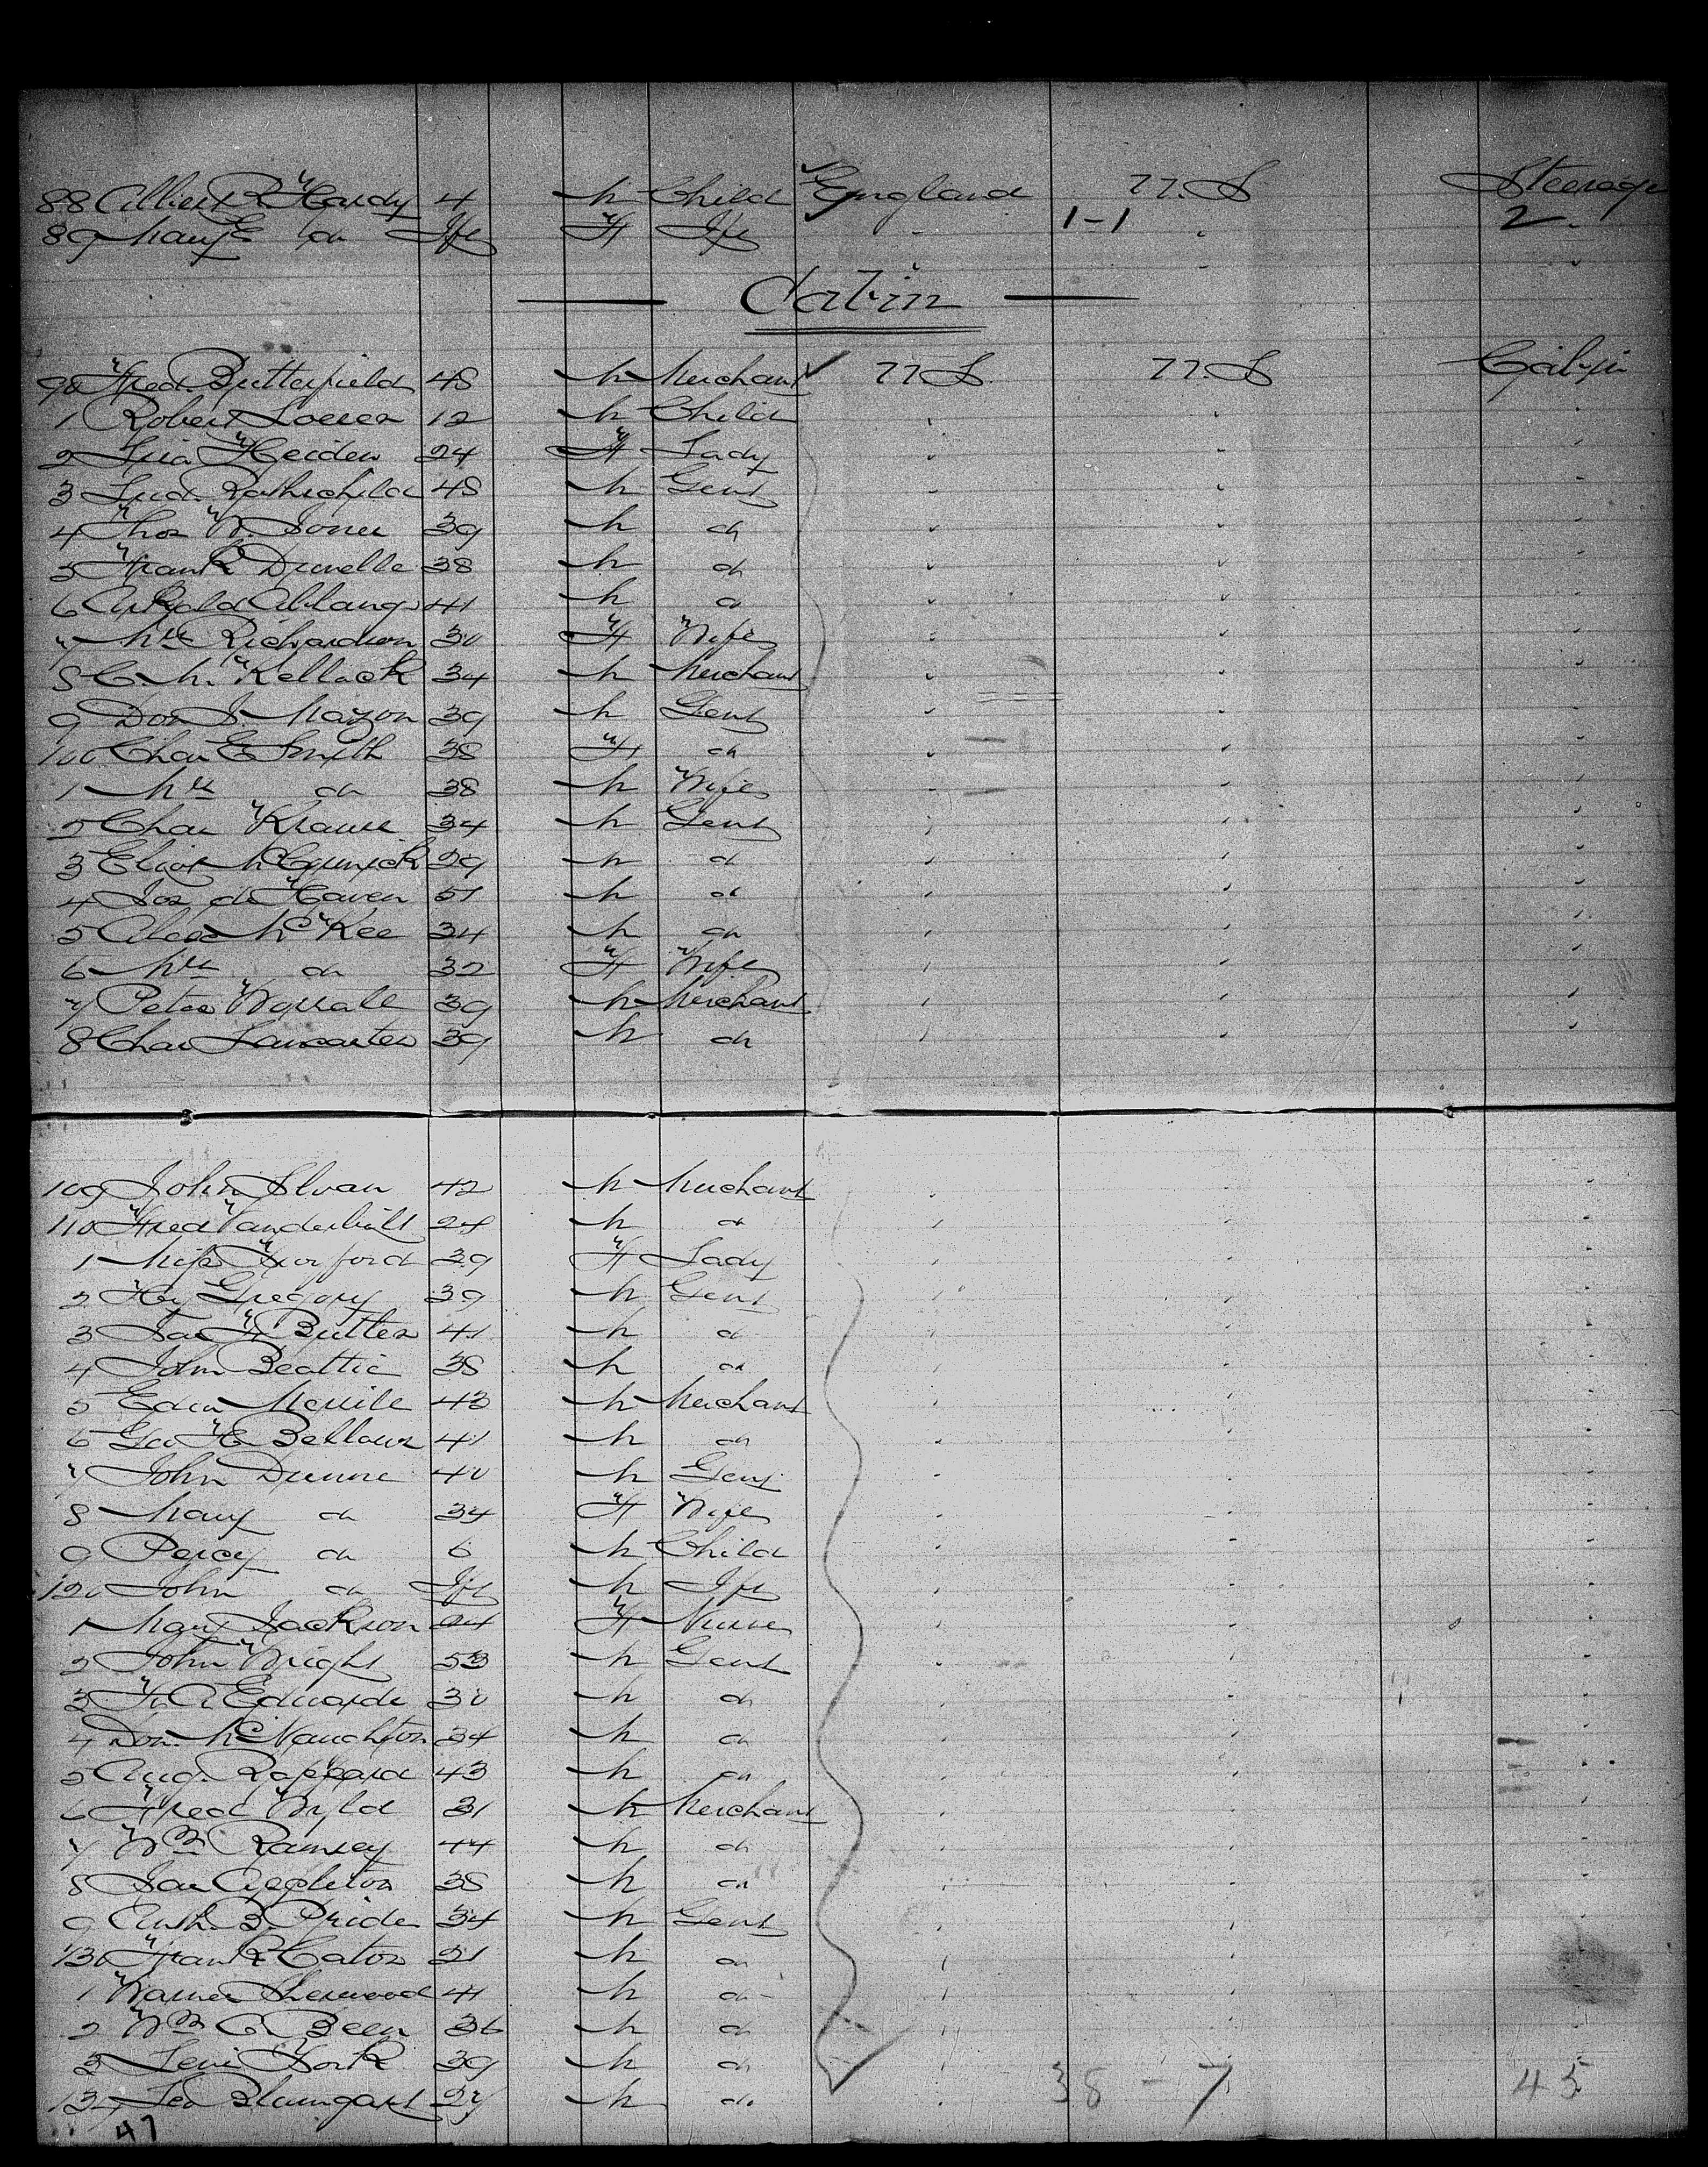 88 Albert R Hardy 4 M Child England U.S. Steerage
89 Mary E do Inft F Inft " 1-1 " 2
Cabin
90 Fred. Butterfield 48 M Merchant U.S. U.S. Cabin
1 Robert 12 M Child " " "
2 Heiden 24 F Lady " " "
3 Rothschild 48 M Gent " " "
4 Thos W. Jones 39 M do " " "
5 Frank 38 M do " " "
6 41 M do " " "
7 Mrs Richardson 30 F Wife " " "
8 C. M. Kellack 34 M Merchant " " "
9 Don J Mayon 39 M Gent " " "
100 Chas E Smith 38 F do " " "
1 Mrs do 38 M Wife " " "
2 Chas Krause 34 M Gent " " "
3 Eliot McCormick 29 M do " " "
4 Jos de Haven 51 M do " " "
5 Alex McKee 34 M do " " "
6 Mrs do 32 F Wife " " "
7 Peter Worrall 39 M Merchant " " "
8 Chas Lancaster 39 M do " " "
109 John Sloan 42 M Merchant " " "
110 Fred Vanderbilt 24 M do " " "
1 Miss 39 F Lady " " "
2 Hy Gregory 39 M Gent " " "
3 Jas H Butler 41 M do " " "
4 John Beattie 38 M do " " "
5 Edwn 43 M Merchant " " "
6 Geo H Bellows 41 M do " " "
7 John Dunne 40 M Gent " " "
8 Mary do 34 F Wife " " "
9 Percy do 6 M Child " " "
120 John do Inft M Inft " " "
1 Mary Jackson 24 F Nurse " " "
2 John Wright 53 M Gent " " "
3 Edwards 30 M do " " "
4 Don. McNaughton 34 M do " " "
5 Aug. Rappard 43 M do " " "
6 Fred Wyld 31 M Merchant " " "
7 Wm Ramsey 44 M do " " "
8 Jas Appleton 38 M do " " "
9 B. Pride 34 M Gent " " "
130 Frank Eaton 21 M do " " "
1 Warner Sherwood 41 M do " " "
2 Wm C Been 36 M do " " "
3 Levi York 39 M do " " "
134 Leo Blumgart 27 M do " 38 - 7 45
47